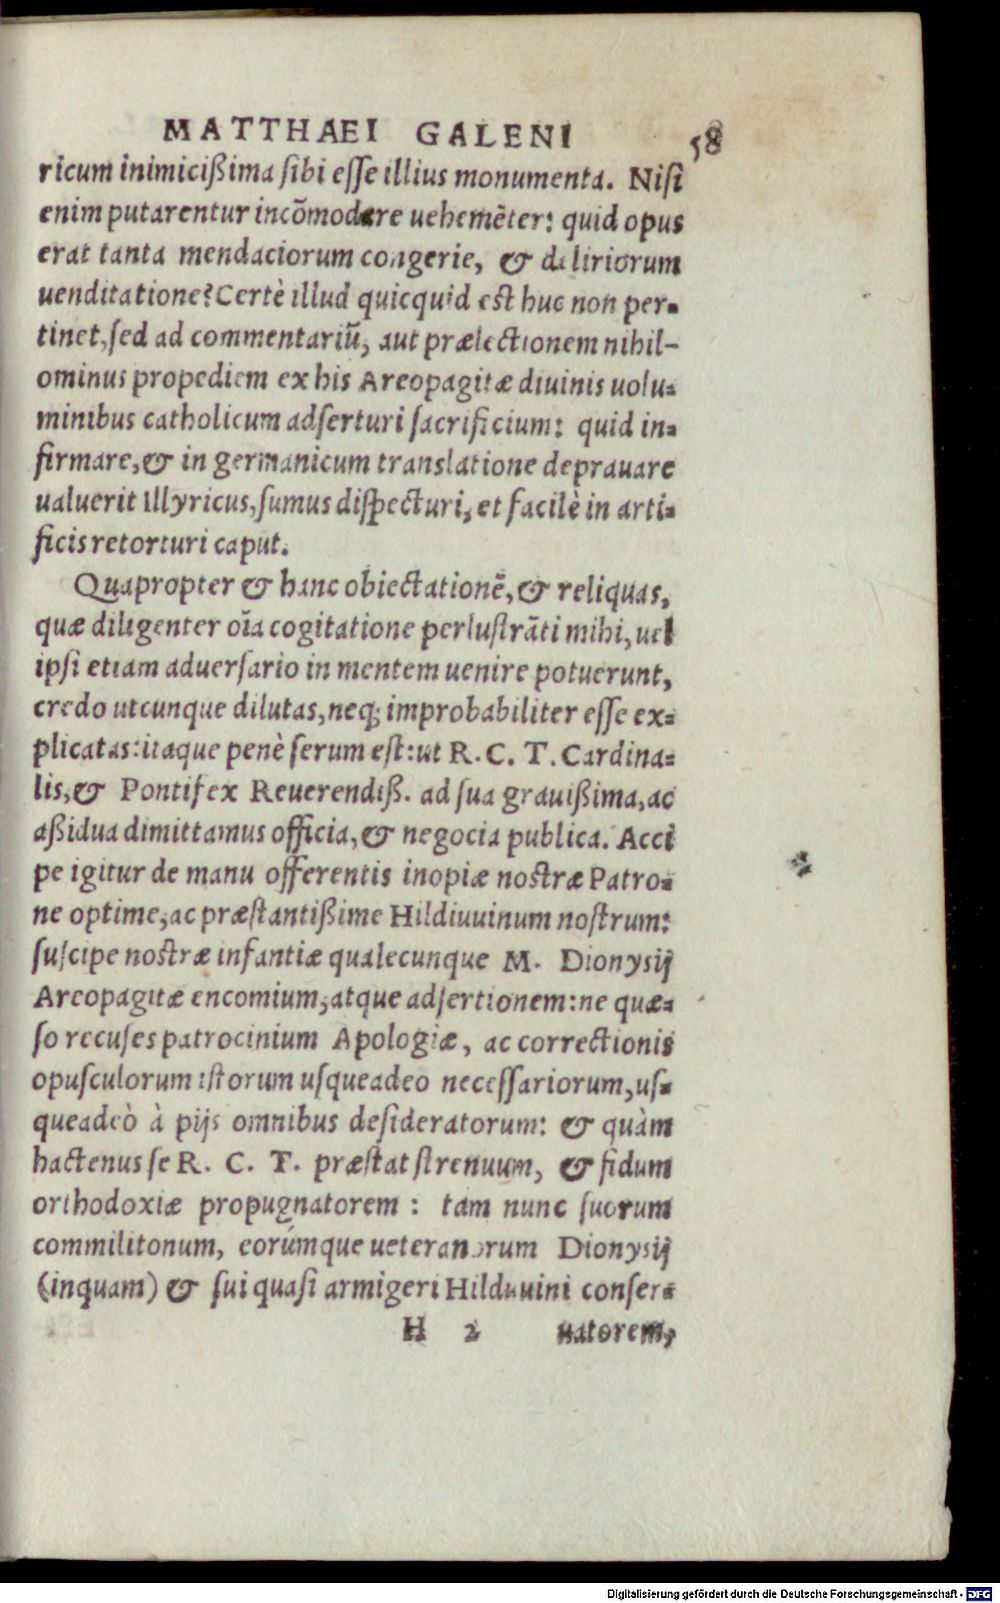 MATTHAEI GALENI 58
ricum inimicißima ſibi eſſe illius monumenta. Niſi
enim putarentur incõmodare uehemẽter: quid opus
erat tanta mendaciorum congerie, & deliriorum
uenditatione? Certè illud quicquid est huc non per-
tinet, ſed ad commentariũ, aut prælectionem nihil-
ominus propediem ex his Areopagitæ diuinis uolu-
minibus catholicum adſerturi ſacrificium: quid in-
firmare, & in germanicum translatione deprauare
ualuerit Illyricus, ſumus diſpecturi, et facilè in arti-
ficis retorturi caput.
Quapropter & hanc obiectationẽ, & reliquas,
quæ diligenter oĩa cogitatione perluſtrãti mihi, uel
ipſi etiam aduerſario in mentem uenire potuerunt,
credo utcunque dilutas, neq; improbabiliter eſſe ex-
plicatas: itaque penè ſerum eſt: ut R. C. T. Cardina-
lis, & Pontifex Reuerendiß. ad ſua grauißima, ac
aßidua dimittamus officia, & negocia publica. Acci
pe igitur de manu offerentis inopiæ nostræ Patro-
ne optime, ac præſtantißime Hildiuuinum noſtrum:
ſuſcipe nostræ infantiæ qualecunque M. Dionysij
Areopagitæ encomium, atque adſertionem: ne quæ-
ſo recuſes patrocinium Apologiæ, ac correctionis
opuſculorum iſtorum uſqueadeo neceſſariorum, uſ-
queadeò à pijs omnibus deſideratorum: & quàm
hactenus ſe R. C. T. præſtat ſtrenuum, & fidum
orthodoxiæ propugnatorem : tam nunc ſuorum
commilitonum, eorúmque ueteranorum Dionysij
(inquam) & ſui quaſi armigeri Hilduuini conſer-
H 2 uatorem,
Digitalisierung gefördert durch die Deutsche Forschungsgemeinschaft - DFG